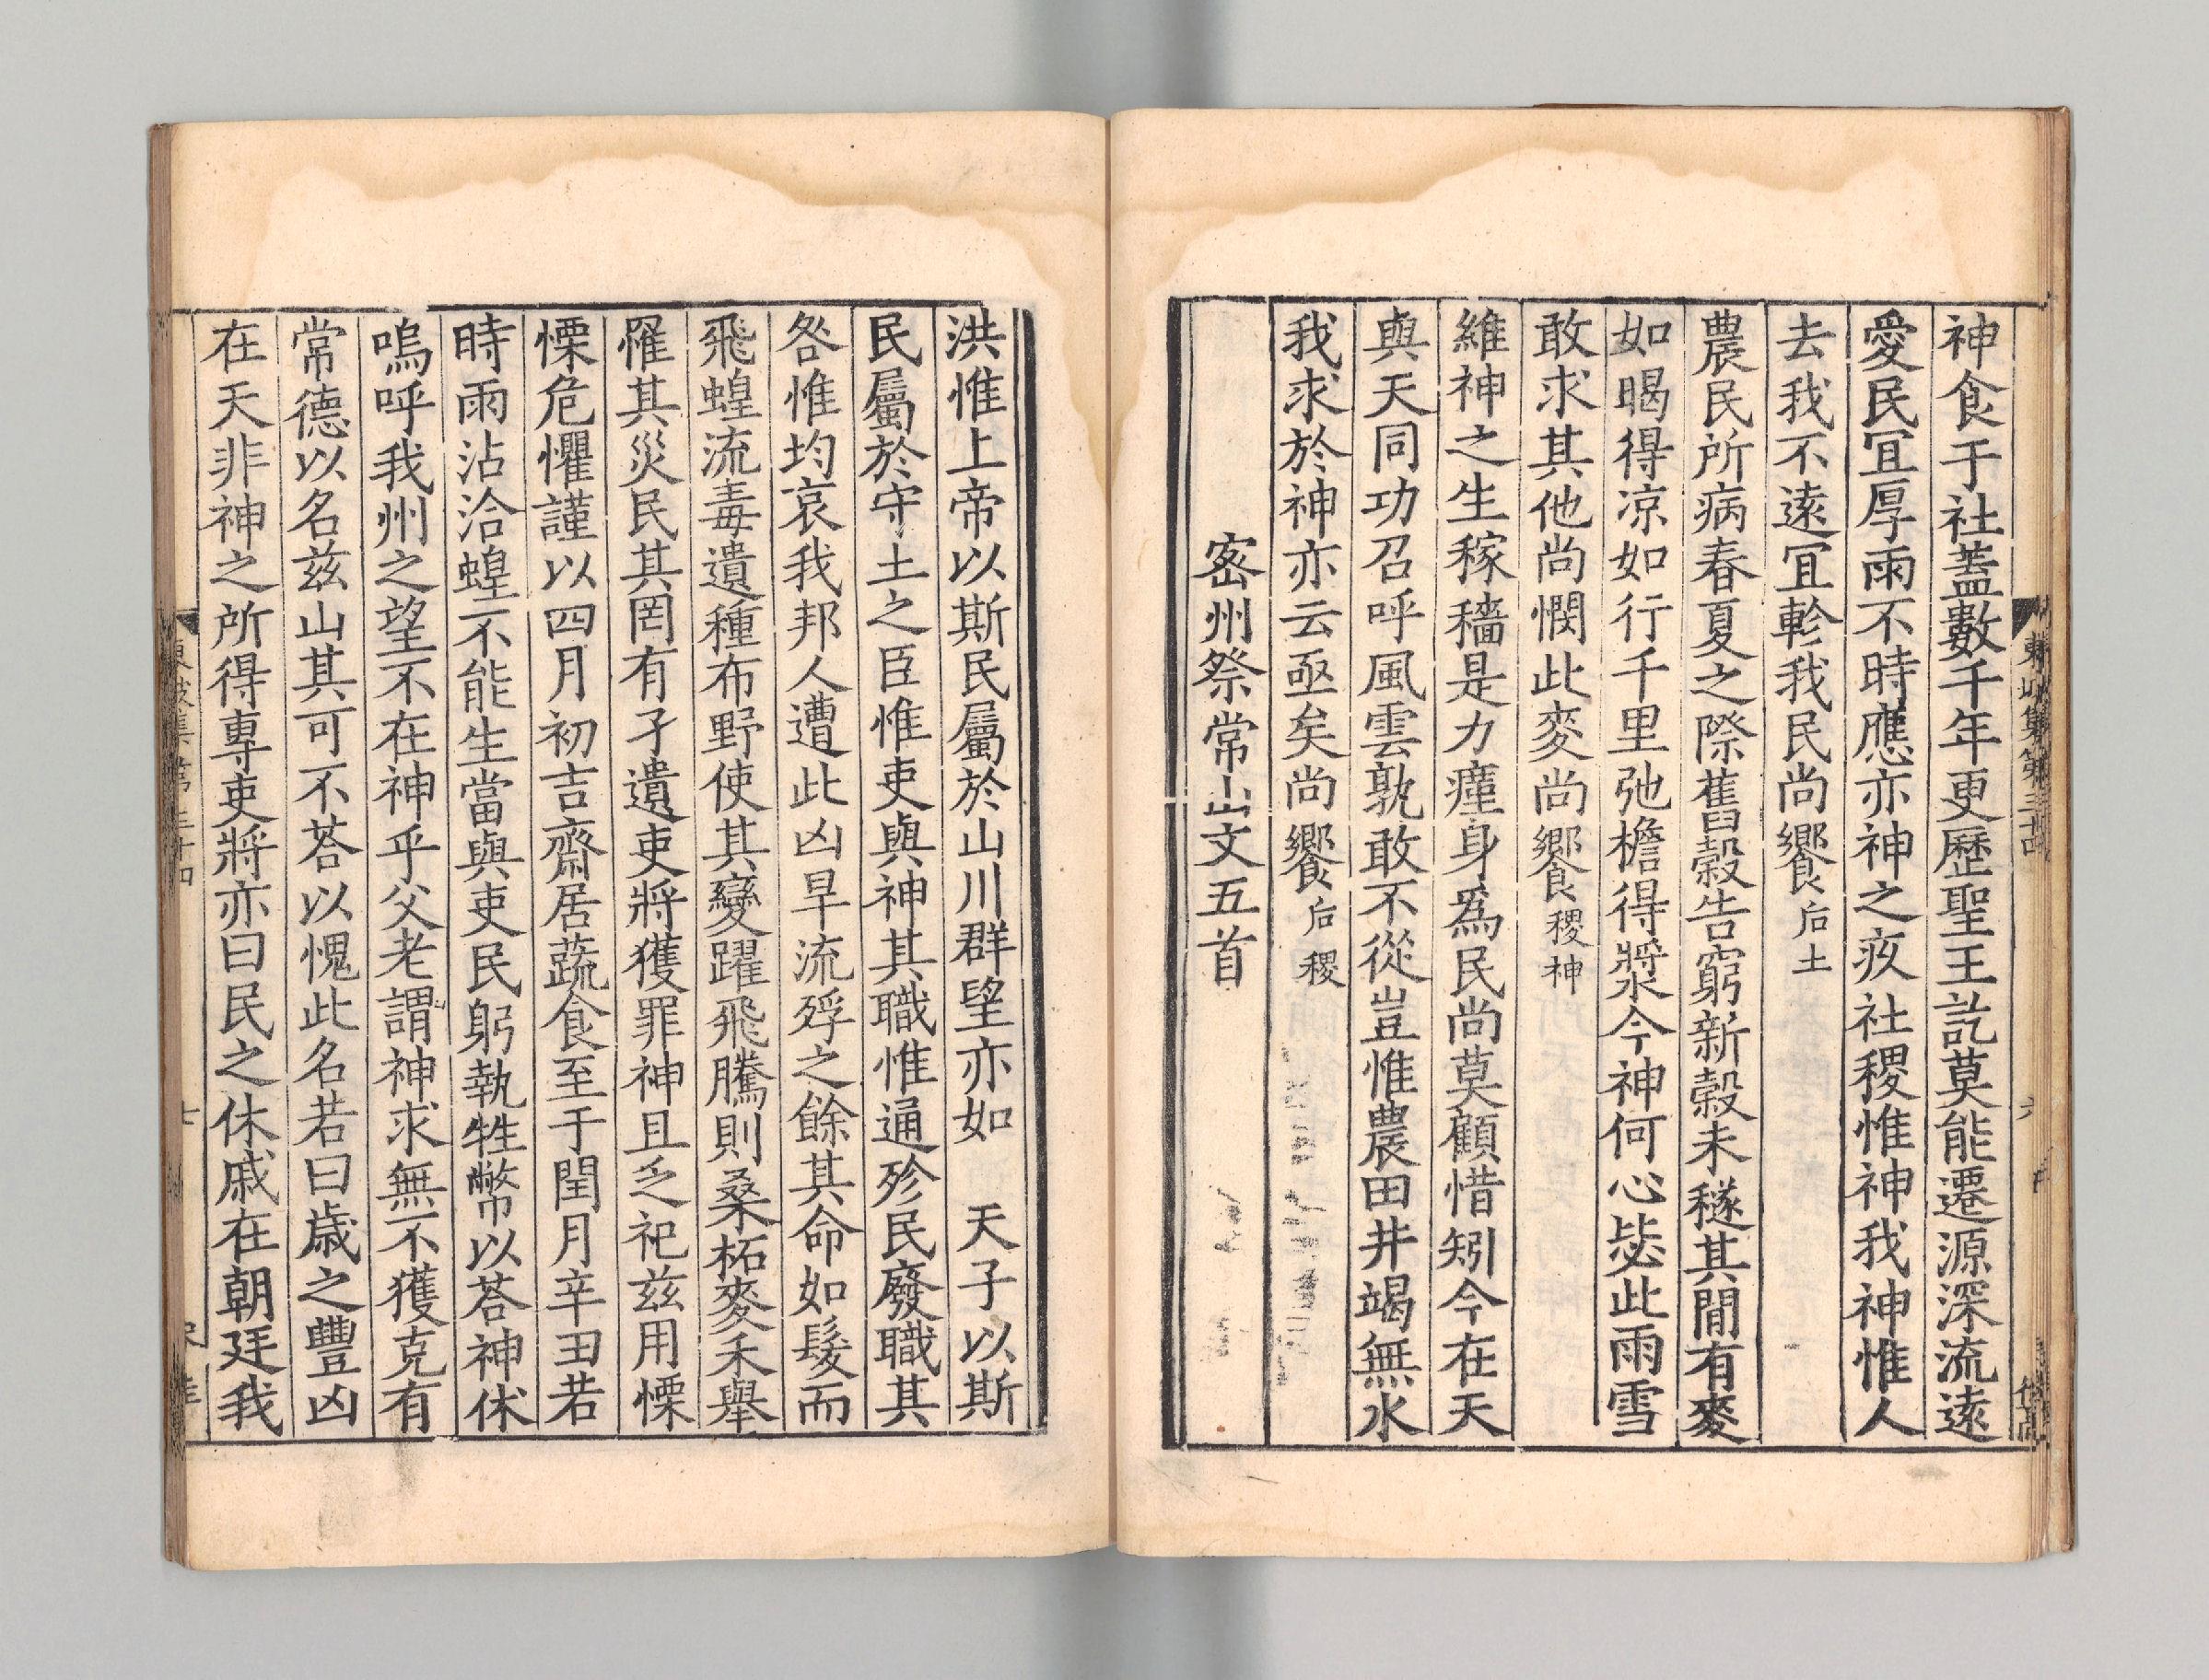 神食于社蓋數千年更歷聖王訖莫能遷源深流遠
愛民宜厚雨不時應亦神之疚社稷惟神我神惟人
去我不遠宜軫我民尚饗后土
農民所病春夏之際舊穀告窮新穀未穟其間有麥
如暍得凉如行千里弛檐得漿今神何心毖此雨雪
敢求其他尚憫此麥尚饗稷神
維神之生稼穡是力癯身爲民尚莫顧惜矧今在天
與天同功召呼風雲孰敢不從豈惟農田井竭無水
我求於神亦云亟矣尚饗后稷
密州祭常山文五首
洪惟上帝以斯民屬於山川群望亦如 天子以斯
民屬於守土之臣惟吏與神其職惟通殄民廢職其
咎惟均哀我邦人遭此凶旱流殍之餘其命如髮而
飛蝗流毒遺種布野使其變躍飛騰則桑柘麥禾舉
罹其災民其罔有孑遺吏將獲罪神且乏祀兹用慄
慄危懼謹以四月初吉齋居蔬食至于閏月辛丑若
時雨沾洽蝗不能生當與吏民躬執牲幣以荅神休
嗚呼我州之望不在神乎父老謂神求無不獲克有
常德以名兹山其可不荅以愧此名若曰歳之豐凶
在天非神之所得專吏將亦曰民之休戚在朝廷我
東坡集第三十四